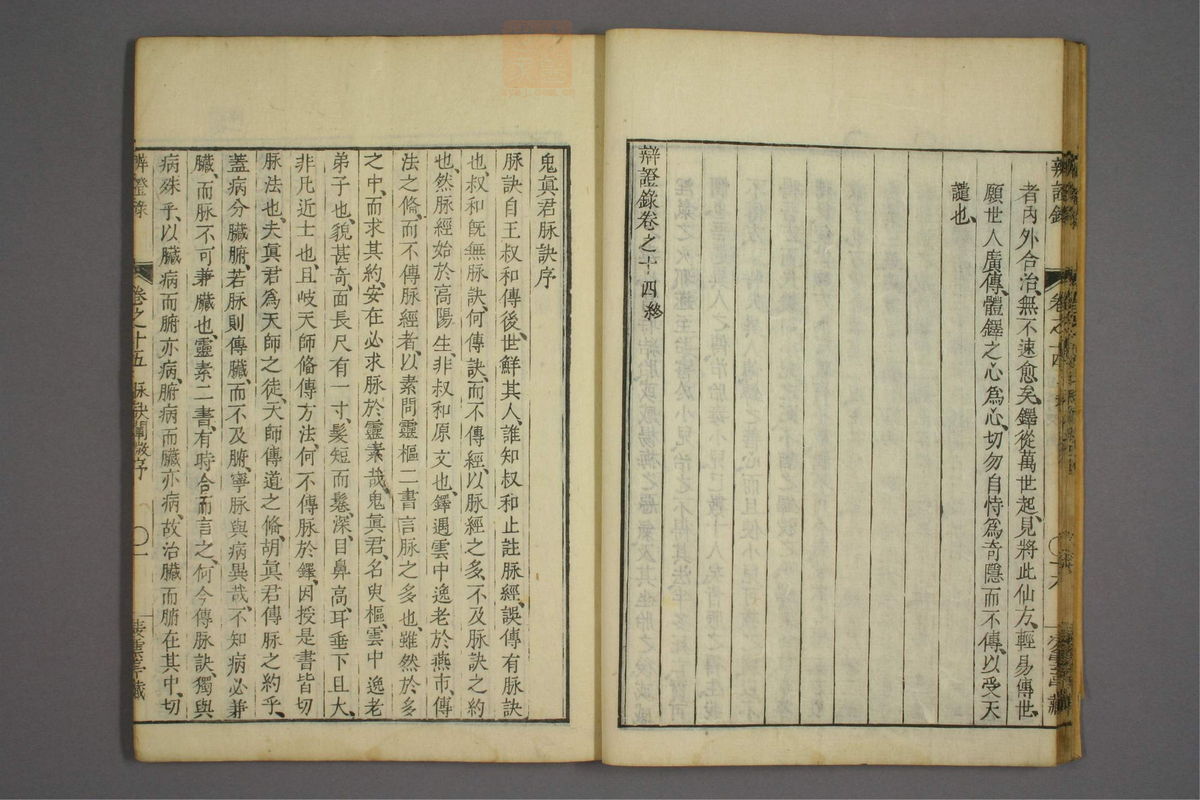 者內外合治、無不速愈矣、鐸從萬世起見、將此仙方、輕易傳世、
願世人廣傳、體鐸之心爲心、切勿自恃爲奇隱而不傳、以受天
譴也、
辯證錄卷之十四終
鬼眞君脉訣序
脉訣自王叔和傳後、世鮮其人、誰知叔和止註脉經、誤傳有脉訣
也、叔和旣無脉訣、何傳訣、而不傳經、以脉經之多、不及脉訣之約
也、然脉經始於高陽生、非叔和原文也、鐸遇雲中逸老於燕市、傳
法之備、而不傳脉經者、以素問靈樞二書言脉之多也、雖然於多
之中、而求其約、安在必求脉於靈素哉、鬼眞君、名臾樞、雲中逸老
弟子也、貌甚奇、面長尺有一寸、髮短而鬈、深目鼻高、耳垂下且大、
非凡近士也、且岐天師備傳方法、何不傳脉於鐸、因授是書皆切
脉法也、夫眞君爲天師之徒、天師傳道之備、胡眞君傳脉之約乎、
蓋病分臟腑、若脉則傳臟、而不及腑、寧脉與病異哉、不知病必兼
臟、而脉不可兼臟也、靈素二書、有時合而言之、何今傳脉訣、獨與
病殊乎、以臟病而腑亦病、腑病而臟亦病、故治臟而腑在其中、切
辨證錄
卷之十五
脉訣闡微序
〇一